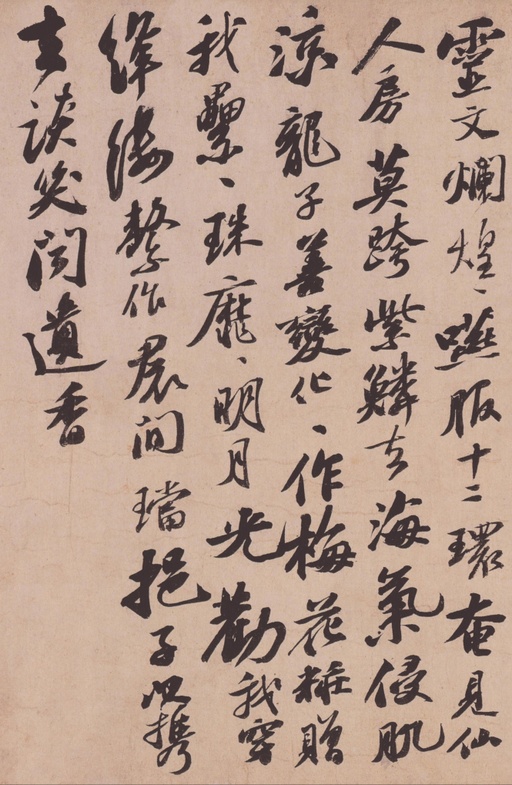 靈文爛煌、嚥服十二環奄見仙
人房莫跨紫鱗去海氣侵肌
涼龍子善變化、作梅花粧贈
我纍、珠靡、明月光勸我穿
絳縷繫作裠間璫挹子㕥攜
去談笑聞遺香